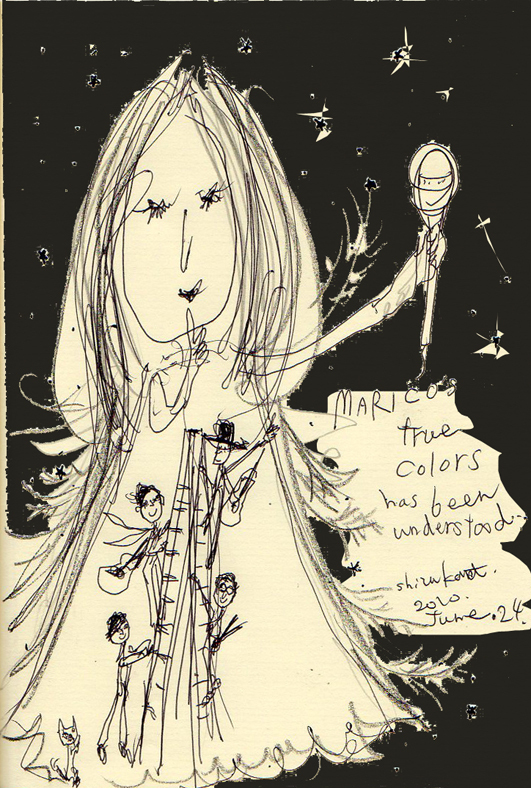 MARICO's
true
colors
has been
understood..
shizukanat.
2010.
June.24.